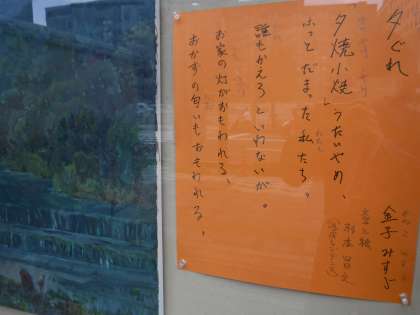 夕ぐれ
金子みすゞ
「夕焼小焼」うたいやめ、
ふっとだまった私たち。
誰もかえろといわないが。
お家の灯がおもわれる、
おかずの匂いもおもわれる。